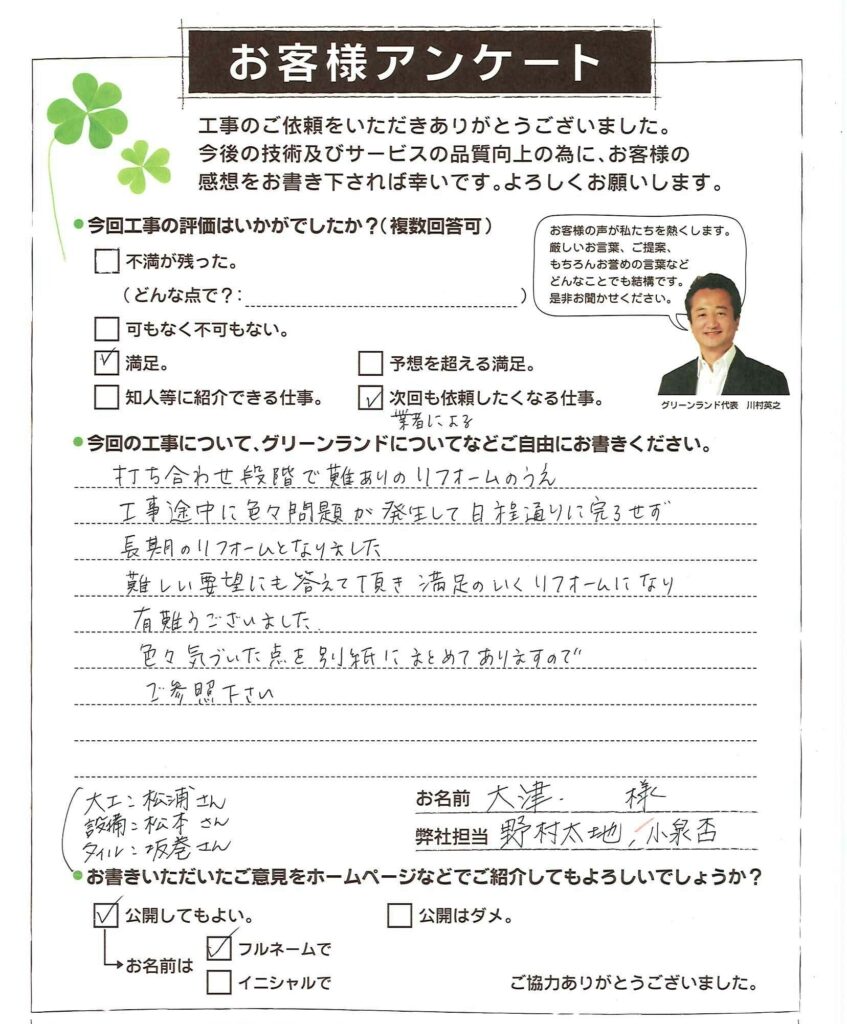 お客様アンケート
工事のご依頼をいただきありがとうございました。
今後の技術及びサービスの品質向上の為に、お客様の
感想をお書き下されば幸いです。よろしくお願いします。
今回工事の評価はいかがでしたか?(複数回答可)
お客様の声が私たちを熱くします。
厳しいお言葉、ご提案、
もちろんお誉めの言葉など
どんなことでも結構です。
是非お聞かせください。
グリーンランド代表 川村英之
不満が残った。
(どんな点で?: )
可もなく不可もない。
満足。
予想を超える満足。
知人等に紹介できる仕事。
次回も依頼したくなる仕事。
業者による
今回の工事について、グリーンランドについてなどご自由にお書きください。
打ち合わせ段階で難ありのリフォームのうえ
工事途中に色々問題が発生して日程通りに完了せず
長期のリフォームとなりました
難しい要望にも答えて頂き 満足のいくリフォームになり
有難うございました.
色々気づいた点を別紙にまとめてありますので
ご参照下さい
大工:松浦さん
設備:松本さん
タイル:坂巻さん
お名前 大津. 様
弊社担当 野村太地, 小泉
お書きいただいたご意見をホームページなどでご紹介してもよろしいでしょうか?
公開してもよい。
公開はダメ。
お名前は
フルネームで
イニシャルで
ご協力ありがとうございました。